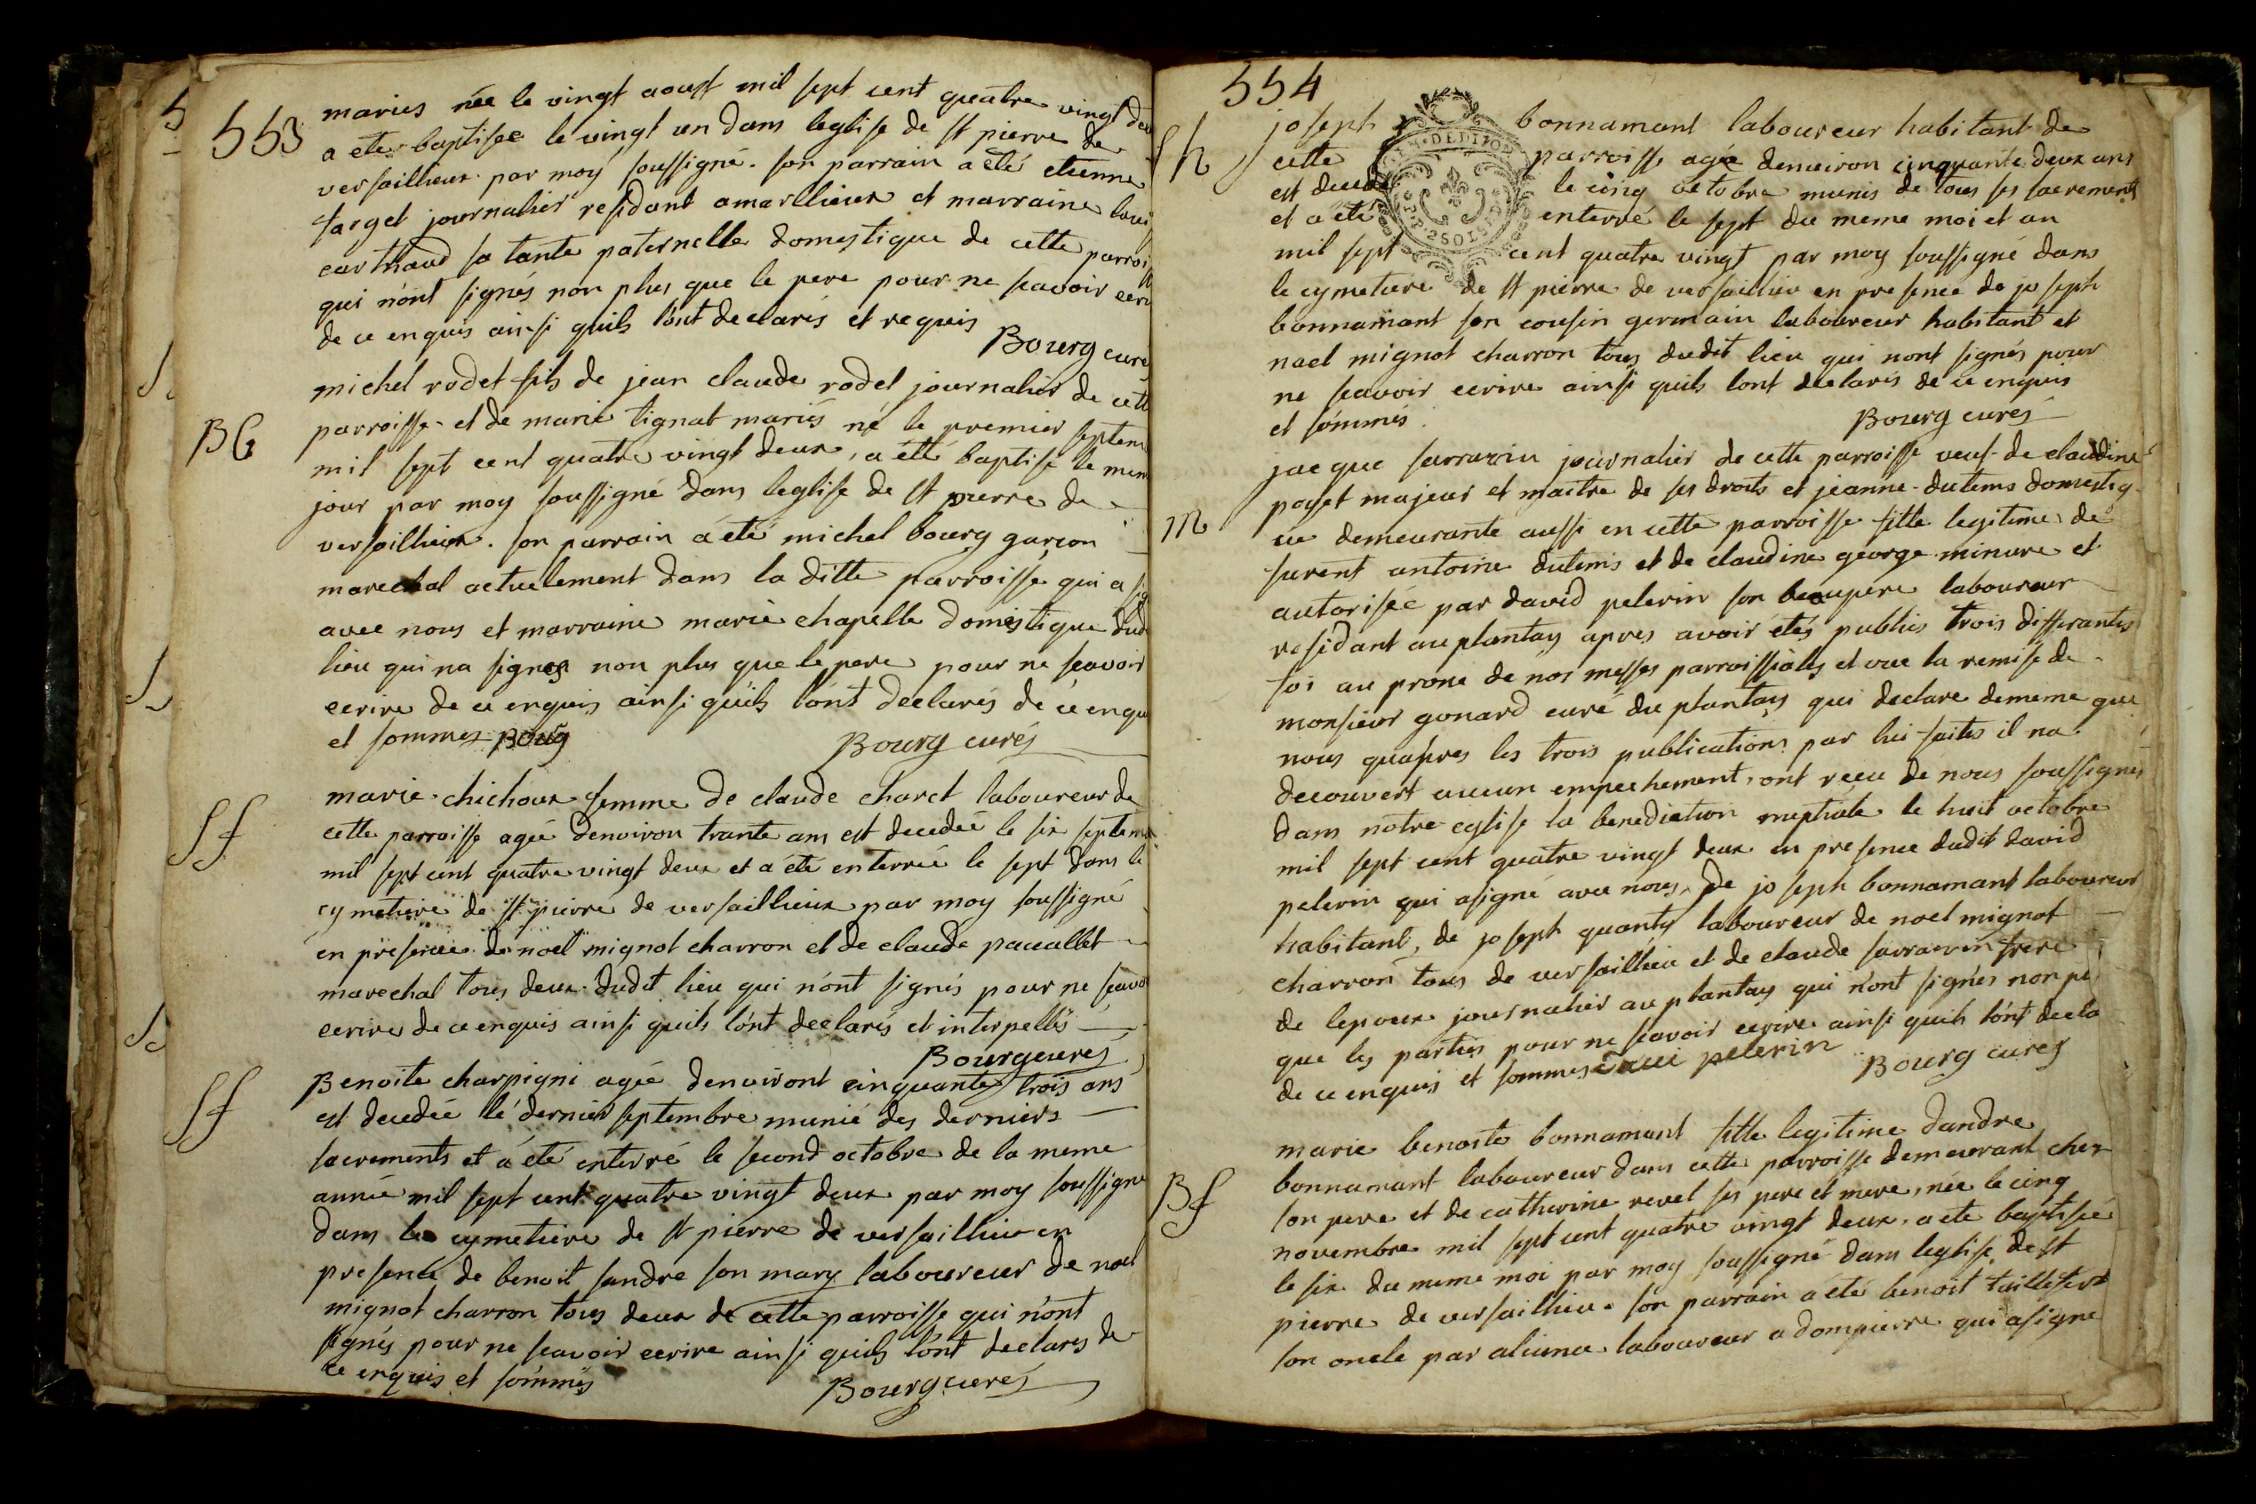 553
maries née le vingt aoust mil sept cent quatre vingt deu
a ete baptisee le vingt un dans leglise de st pierre de
versaillieux par moy soussigné. son parrain a été etienne
farget journalier residant amarllieux et marraine loui
carthaud sa tante paternelle domestique de cette parroi
qui n'ont signés non plus que le pere pour ne scavoir ecri
de ce enquis ainsi quils l'ont declarés et requis
Bourg curé
BG
michel rodet fils de jean claude rodet journalier de cett
parroisse et de marie tignat mariés né le premier septem
mil sept cent quatre vingt deux, a été baptisé le mem
jour par moy soussigné dans leglise de st pierre de
versaillieux. son parrain a été michel bourg garçon
marechal actuelement dans la ditte parroisse qui a sig
avec nous et marraine marie chapelle domestique dud
lieu qui na signés non plus que le pere pour ne scavoir
ecrire de ce enquis ainsi quils l'ont declarés de ce enqu
et sommes Boug Bourg curés
Sf
marie chichoux femme de claude charct laboureur de
cette parroisse agée denviron trante ans est decedée le six septem
mil sept cent quatre vingt deux et a été enterrée le sept dans le
cymetiere de st pierre de versaillieux par moy soussigné
en presence de noel mignot charron et de claude pacallet
marechal tous deux dudit lieu qui n'ont signés pour ne scavo
ecrire de ce enquis ainsi quils l'ont declarés et interpellés
Bourg curés
Sf
Benoite charpigni agée denviront cinquante trois ans
est decedée le dernier septembre munie des derniers
sacrements et a été enterré le second octobre de la meme
année mil sept cent quatre vingt deux par moy soussigne
dans le cymetiere de st pierre de versaillieu en
presence de benoit fandré son mary laboureur de noel
mignot charron tous deux de cette parroisse qui n'ont
signés pour ne scavoir ecrire ainsi quils l'ont declarés de
ce enquis et sommés Bourg curés
554
Sh
joseph bonnamant laboureur habitant de
cette parroisse agée denviron cinquante deux ans
est decedé le cinq octobre munis de tous ses sacrements
et a été enterré le sept du meme moi et an
mil sept cent quatre vingt par moy soussigné dans
le cymetiere de st pierre de versaillieu en presence de joseph
bonnamant son cousin germain laboureur habitant et
nael mignot charron tous dudit lieu qui nont signés pour
ne scavoir ecrire ainsi quils lont declarés de ce enquis
et sommés. Bourg curés
M
jacque sarrazin journalier de cette parroisse veuf de claudine
poyet majeur et maitre de ses droits et jeanne dutems domestiq
ue demeurante aussi en cette parroisse fille legitime de
furent antoine dutems et de claudine george mineure et
autorisée par david pelerin son beaupere laboureur
residant au plantay apres avoir étés publiés trois differantes
foi au prone de nos messes parroissiales et vue la remise de
monsieur gonard curé du plantay qui declare dememe que
nous quapres les trois publications par lui faites il na
decouvert aucun empechement, ont recu de nous soussignés
dans notre eglise la benediction nuptiale le huit octobre
mil sept cent quatre vingt deux en presence dudit david
pelerin qui asigné avec nous, de joseph bonnamant laboureur
habitant, de joseph quanty laboureur de noel mignot
charron tous de versaillieu et de claude sarrazin frere
de lepoux journalier au plantay qui n'ont signés non pl
que les parties pour ne scavoir ecrire ainsi quils l'ont decla
de ce enquis et sommes pelerin Bourg curés
Bf
marie benoite bonnamant fille legitime dandre
bonnamant laboureur dans cette parroisse demeurant chez
son pere et de catherine revel ses pere et mere, née le cinq
novembre mil sept cent quatre vingt deux, a ete baptisée
le six du meme moi par moy soussigné dans leglise de st
pierre de versaillieu. son parrain a été benoit taillefert
son oncle par aliance laboureur a dompierre qui a signe